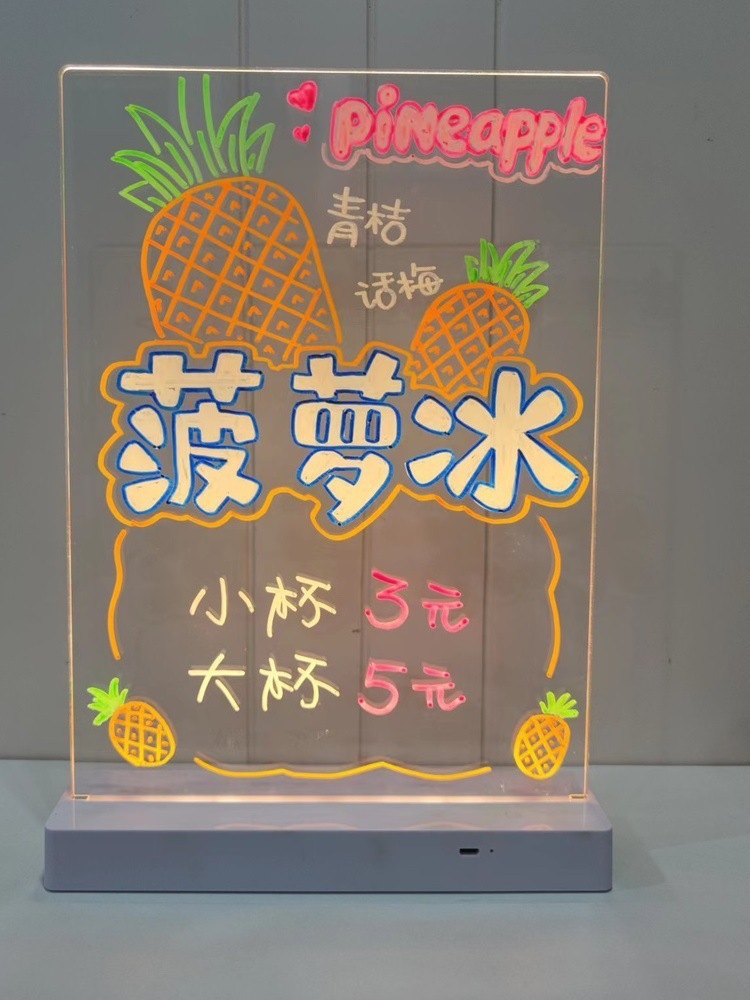 pineapple
青桔
话梅
菠萝冰
小杯 3元
大杯 5元